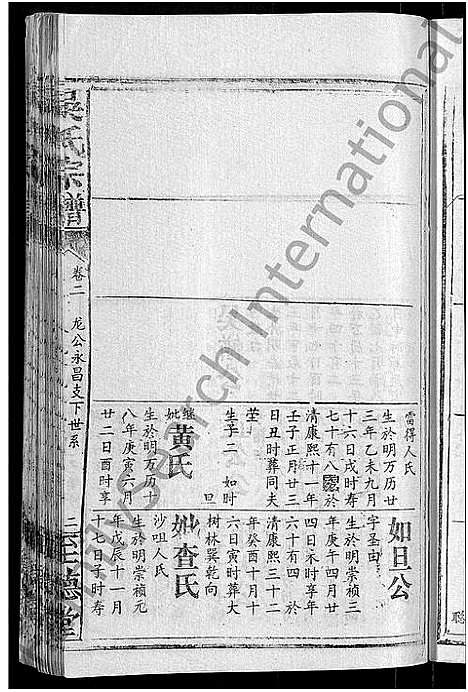 吴氏宗谱
卷二
龙公永昌支下世系
二
至德堂
雷得人氏
生於明万历廿
三年乙未九月
十六日戌时寿
七十有八殁於
清康熙十一年
壬子正月廿三
日丑时葬同夫
茔
生子二 如时
旦
继妣黄氏
生於明万历十
八年庚寅六月
廿二日酉时享
如旦公
字圣由
生於明崇祯三
年庚午四月廿
四日未时享年
六十有四 於
清康熙三十二
年癸酉十月十
六日寅时葬大
树林巽乾向
妣查氏
沙咀人氏
生於明崇祯元
年戊辰十一月
十七日子时寿
聪
mySearch International